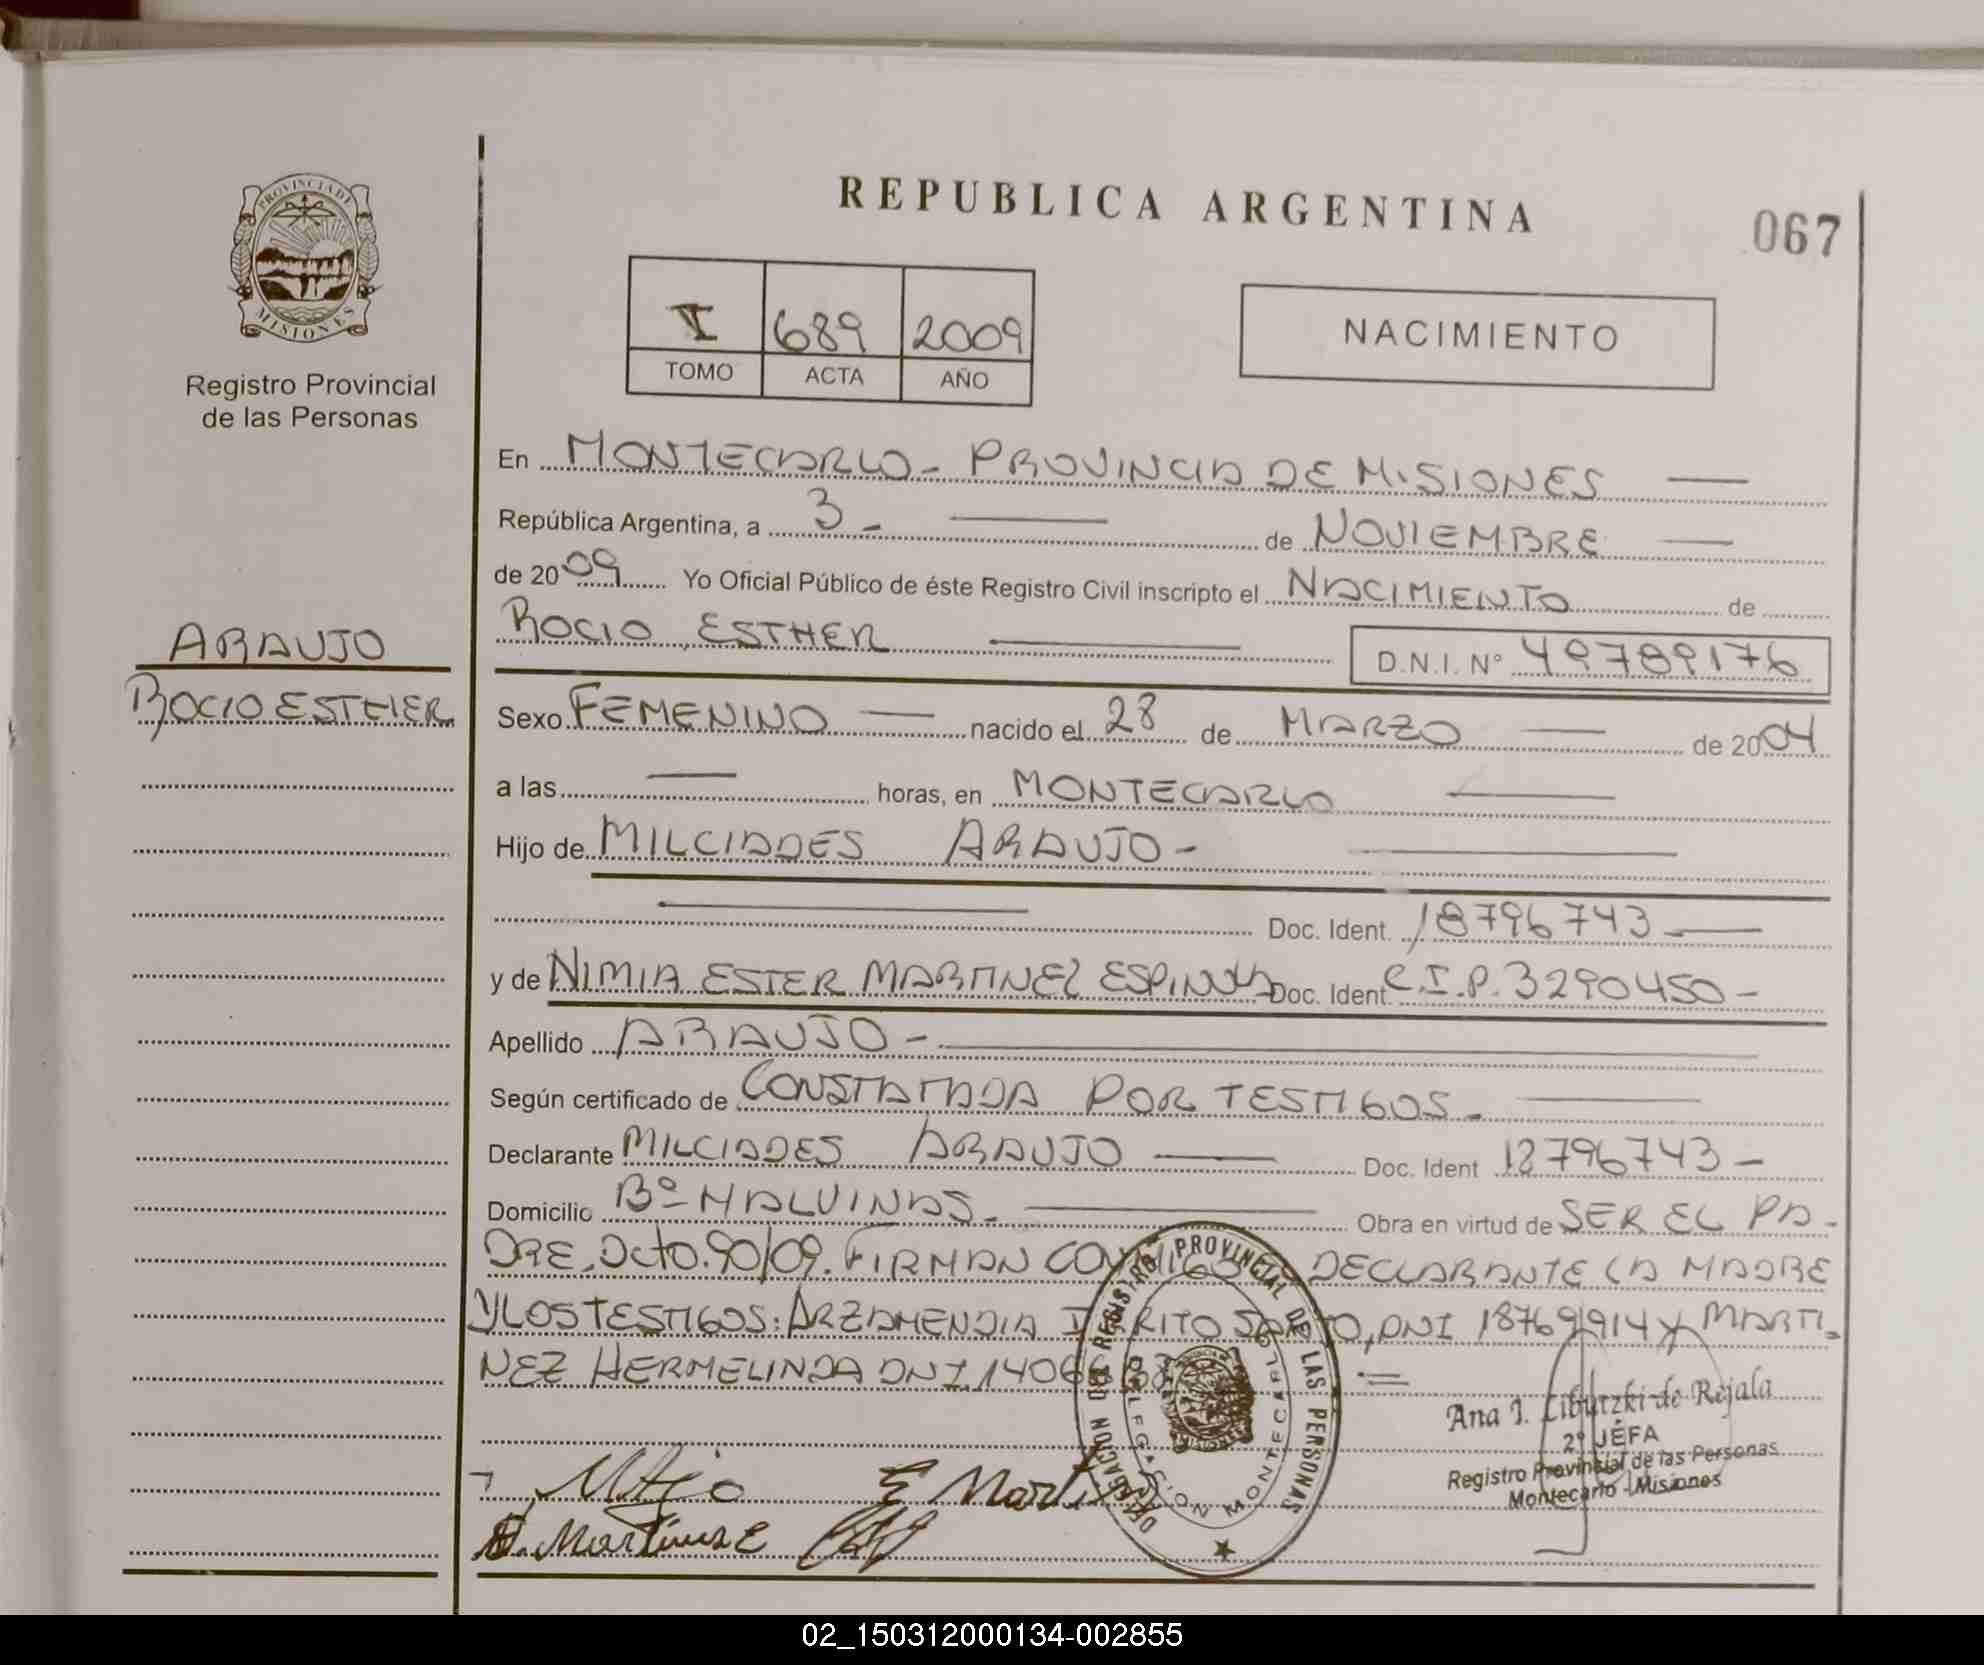 PROVINCIA DE
MISIONES
Registro Provincial
de las Personas
REPUBLICA ARGENTINA
067
I 689 2009
TOMO ACTA AÑO
NACIMIENTO
En MONTECARLO - PROVINCIA DE MISIONES
República Argentina, a 3 - de NOVIEMBRE
de 2009 Yo Oficial Público de éste Registro Civil inscripto el NACIMIENTO de
ROCIO ESTHER D.N.I. N° 49789176
ARAUJO
ROCIO ESTHER
Sexo FEMENINO nacido el 28 de MARZO de 2004
a las horas, en MONTECARLO
Hijo de MILCIADES ARAUJO -
Doc. Ident. 18796743
y de NIMIA ESTER MARTINEZ ESPINOLA Doc. Ident. C.I.P. 3290450 -
Apellido ARAUJO -
Según certificado de CONSTATADA POR TESTIGOS -
Declarante MILCIADES ARAUJO Doc. Ident 18796743 -
Domicilio Bº MALVINAS - Obra en virtud de SER EL PA-
DRE. Dcto. 90/09. FIRMAN CONMIGO DECLARANTE LA MADRE
Y LOS TESTIGOS: ARZAMENDIA SANTO, DNI 18769914 Y MARTI-
NEZ HERMELINDA DNI
DELEGACION DEL REGISTRO PROVINCIAL DE LAS PERSONAS
DELEGACION MONTECARLO
MISIONES
Ana I. Libutzki de Rejala
2º JEFA
Registro Provincial de las Personas
Montecarlo - Misiones
E Martinez
H. Martinez
02_150312000134-002855